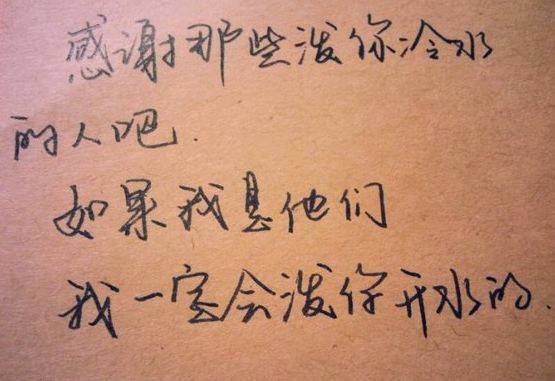 感谢那些泼你冷水
的人吧.
如果我是他们
我一定会泼你开水的.